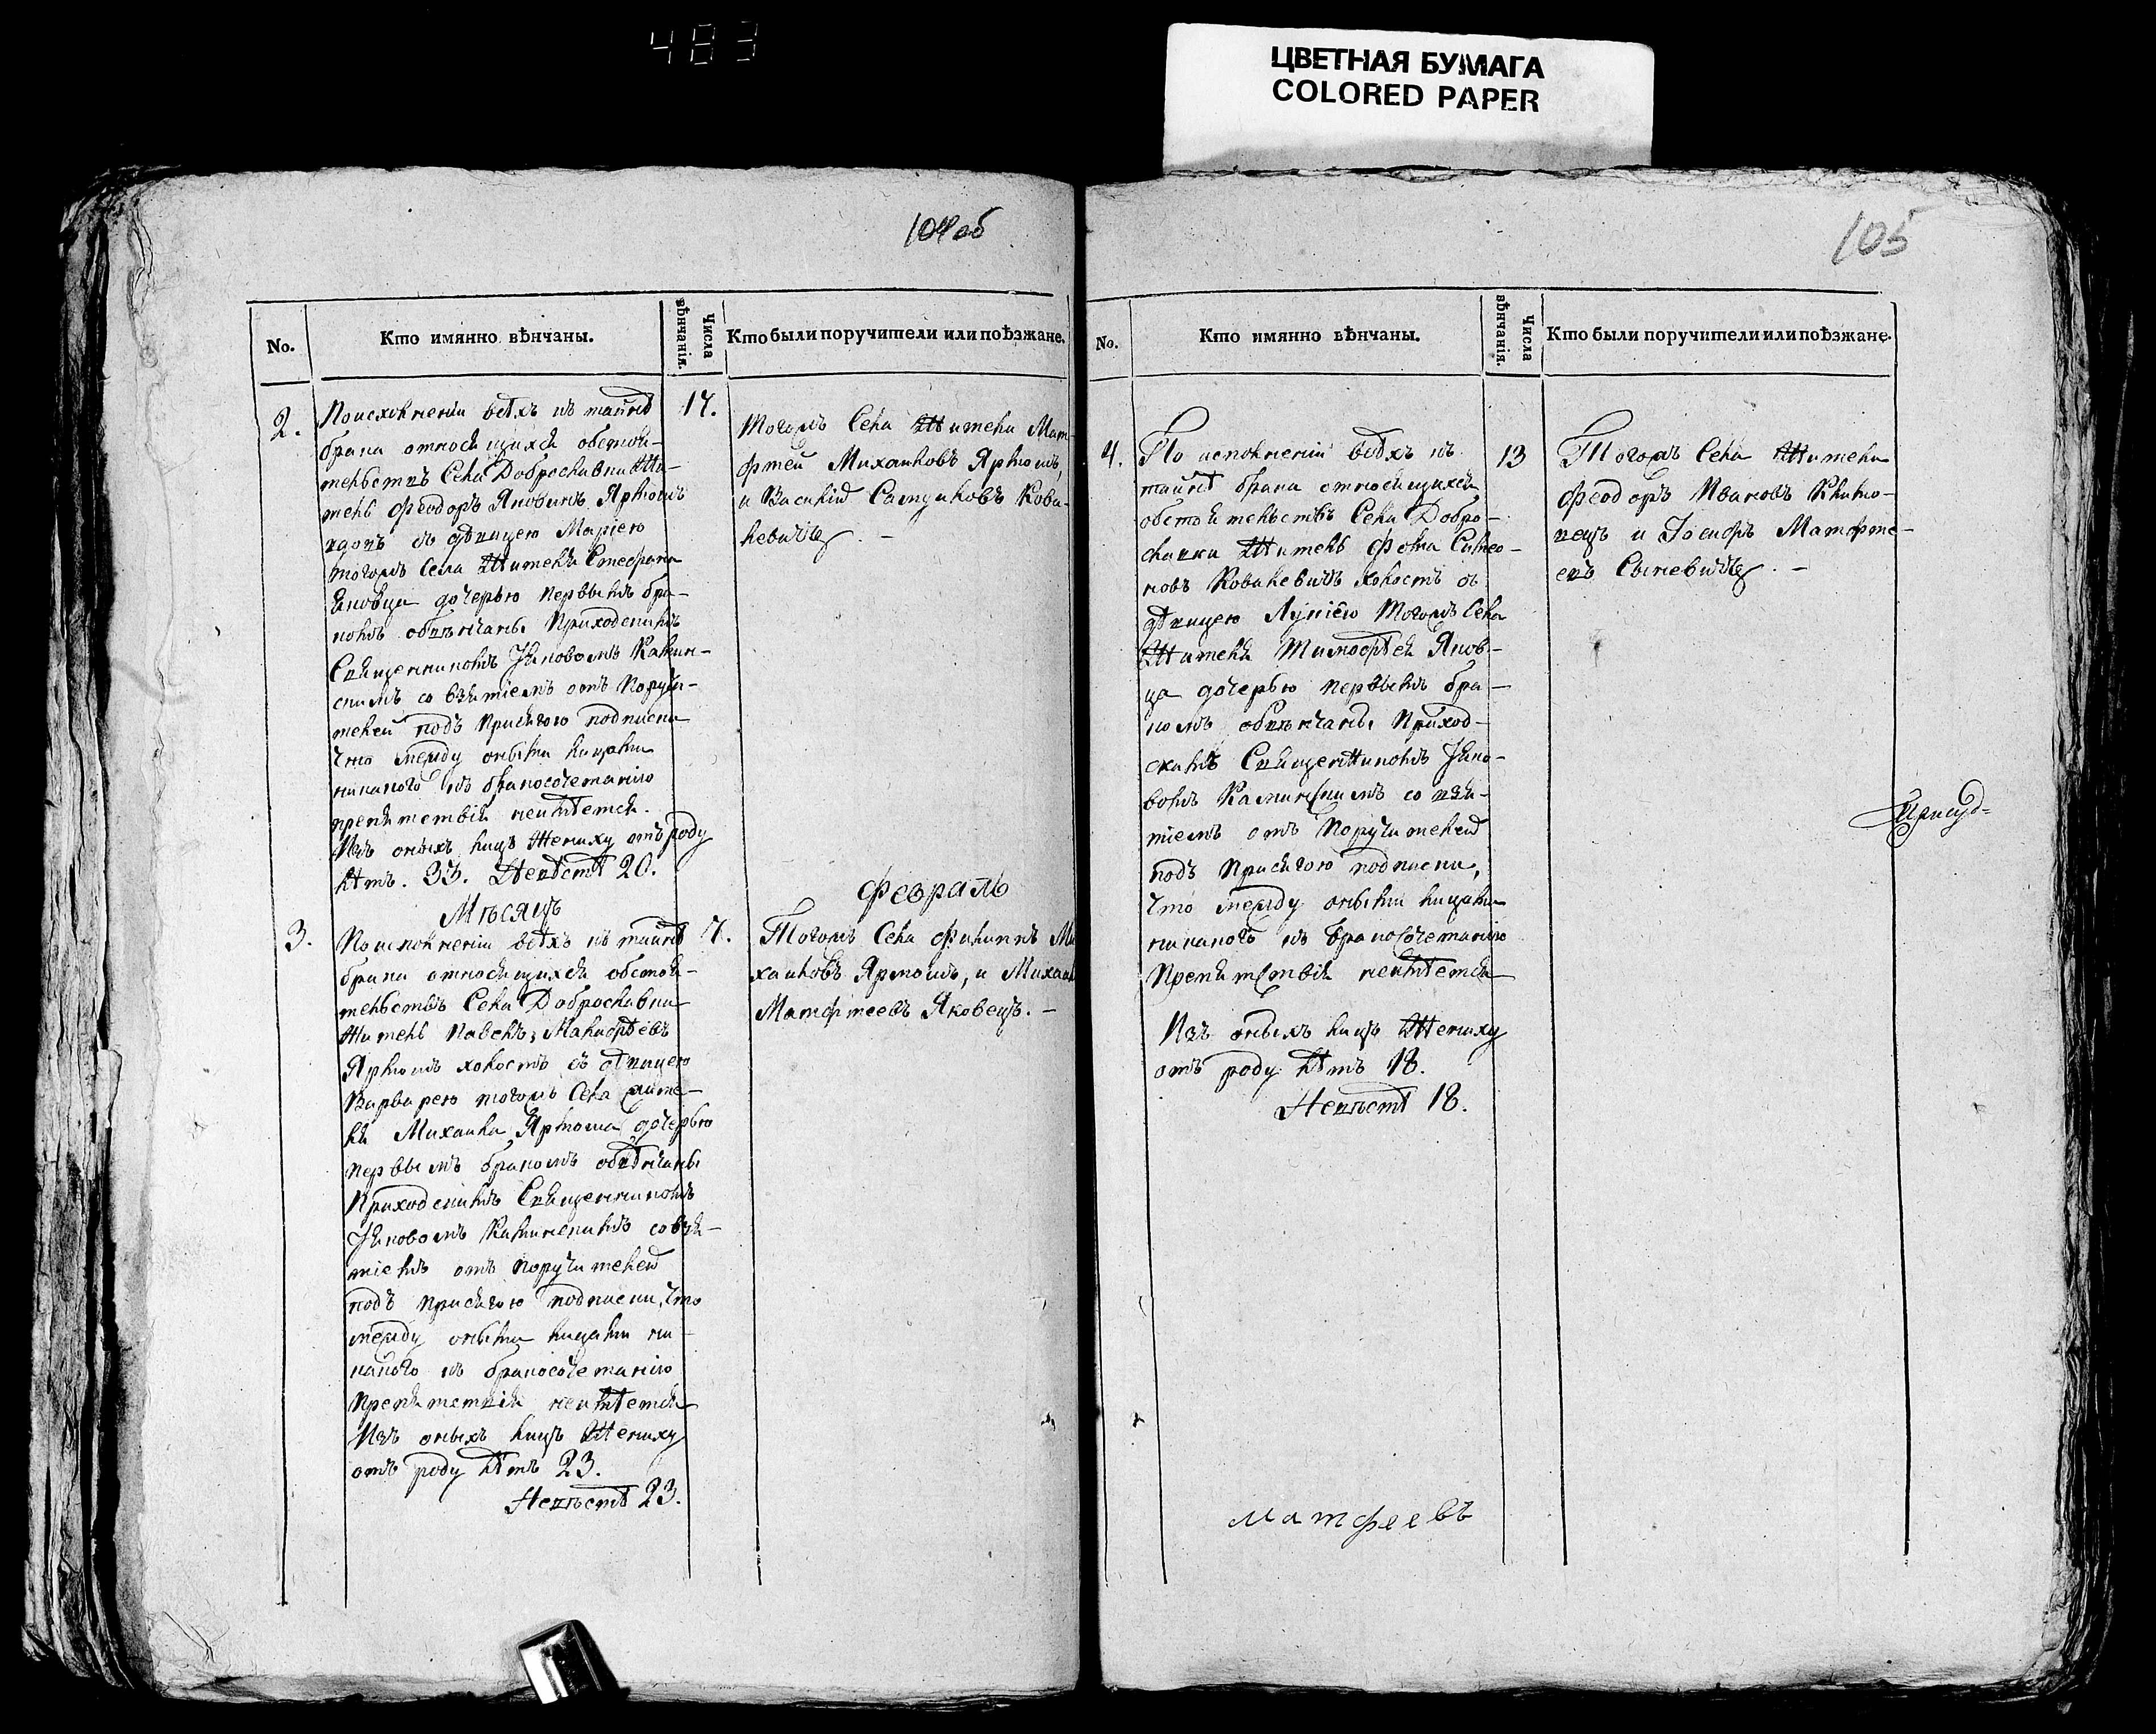 483
ЦВЕТНАЯ БУМАГА
COLORED PAPER
104об
No.
Кто имянно вѣнчаны.
Числа вѣнчанія.
Кто были поручители или поѣзжане.
2.
17.
По исполненіи всѣхъ къ тайнѣ
брака относящихся обстоя-
тельствъ Села Доброславки Жи-
тель Феодоръ Яковимъ Ярмошъ
вдовъ съ дѣвицею Маріею
тогожъ Села Жителя Стефана
Яковца дочерью первымъ бра-
комъ обвѣнчаны Приходскимъ
Священникомъ Іяковомъ Камин-
скимъ со взятіемъ отъ Поручи-
телей подъ Присягою подписки
что между оными лицами
никакого къ бракосочетанію
препятствія неимѣется.
Изъ оныхъ лицъ Жениху отъ роду
лѣтъ. 33. Невѣстѣ 20.
Тогожъ Села Жители Мат-
фтей Михаиловъ Ярмошъ,
и Василій Самуиловъ Кова-
левичъ. –
Мѣсяцъ
Февраль
3.
7.
По исполненіи всѣхъ къ тайнѣ
брака относящихся обстоя-
тельствъ Села Доброславки
Житель Павелъ Матфѣевъ
Ярмошъ холостъ съ дѣвицею
Варварею тогожъ Села жите-
ля Михаила Ярмоша дочерью
первымъ бракомъ обвѣнчаны
Приходскимъ Священникомъ
Іяковомъ Каминскимъ со взя-
тіемъ отъ поручителей
подъ присягою подписки, что
между оными лицами ни-
какого къ бракосочетанію
Препятствія неимѣется
Изъ оныхъ лицъ Жениху
отъ роду лѣтъ 23.
Невѣстѣ 23.
Тогожъ Села Филиппъ Ми
хаиловъ Ярмошъ, и Михаил
Матфтеевъ Яковецъ. –
105
No.
Кто имянно вѣнчаны.
Числа вѣнчанія.
Кто были поручители или поѣзжане.
4.
13
По исполненіи всѣхъ къ
тайнѣ брака относящихся
обстоятельствъ Села Добро-
славки Житель Фома Симео-
новъ Ковалевичъ холостъ съ
дѣвицею Лукіею Тогожъ Села
Жителя Тимофѣя Яков-
ца дочерью первымъ бра-
комъ обвѣнчаны Приход-
скимъ Священникомъ Іяко-
вомъ Каминскимъ со взя-
тіемъ отъ Поручителей
подъ Присягою подписки,
что между оными лицами
никакого къ бракосочетанію
Препятствія неимѣется
Изъ оныхъ лицъ Жениху
отъ роду лѣтъ 18.
Невѣстѣ 18.
Тогожъ Села Жители
Феодоръ Ивановъ Климо-
вецъ и Іосифъ Матфте-
евъ Сыневичъ. –
Присуд=
Матфеевъ